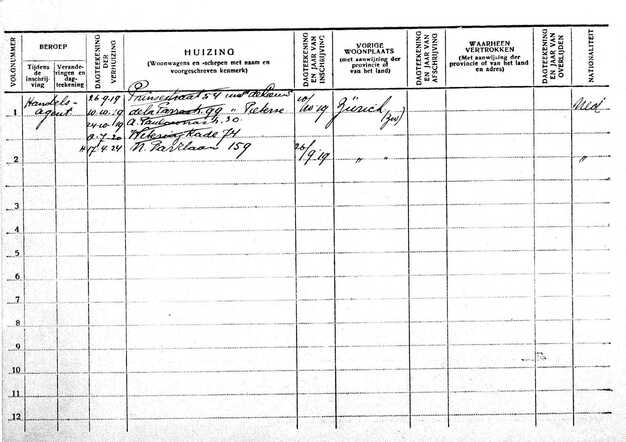 VOLGNUMMER
BEROEP
Tijdens de inschrijving
Veranderingen en dagteekening
DAGTEEKENING DER VERHUIZING
HUIZING
(Woonwagens en -schepen met naam en voorgeschreven kenmerk)
DAGTEEKENING EN JAAR VAN INSCHRIJVING
VORIGE WOONPLAATS
(met aanwijzing der provincie of van het land)
DAGTEEKENING EN JAAR VAN AFSCHRIJVING
WAARHEEN VERTROKKEN
(Met aanwijzing der provincie of van het land en adres)
DAGTEEKENING EN JAAR VAN OVERLIJDEN
NATIONALITEIT
1 Handels-agent 26 9.19 Prinsestraat 54 10/10 19 Zürich Ned
10.10.19 99 "
24.10.19 30
Weteringkade 74
2 17.4.24 N. Parklaan 159 26/9.19 " " "
3
4
5
6
7
8
9
10
11
12